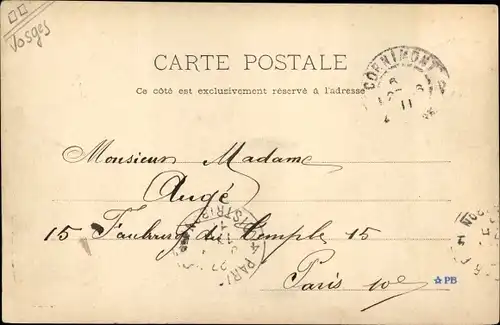 Vosges
CARTE POSTALE
Ce côté est exclusivement réservé à l'adresse
CORNIMONT
Monsieur Madame
Augé
15 Faubourg du Temple 15
PARI
DISTRIB
Paris 10e
PB